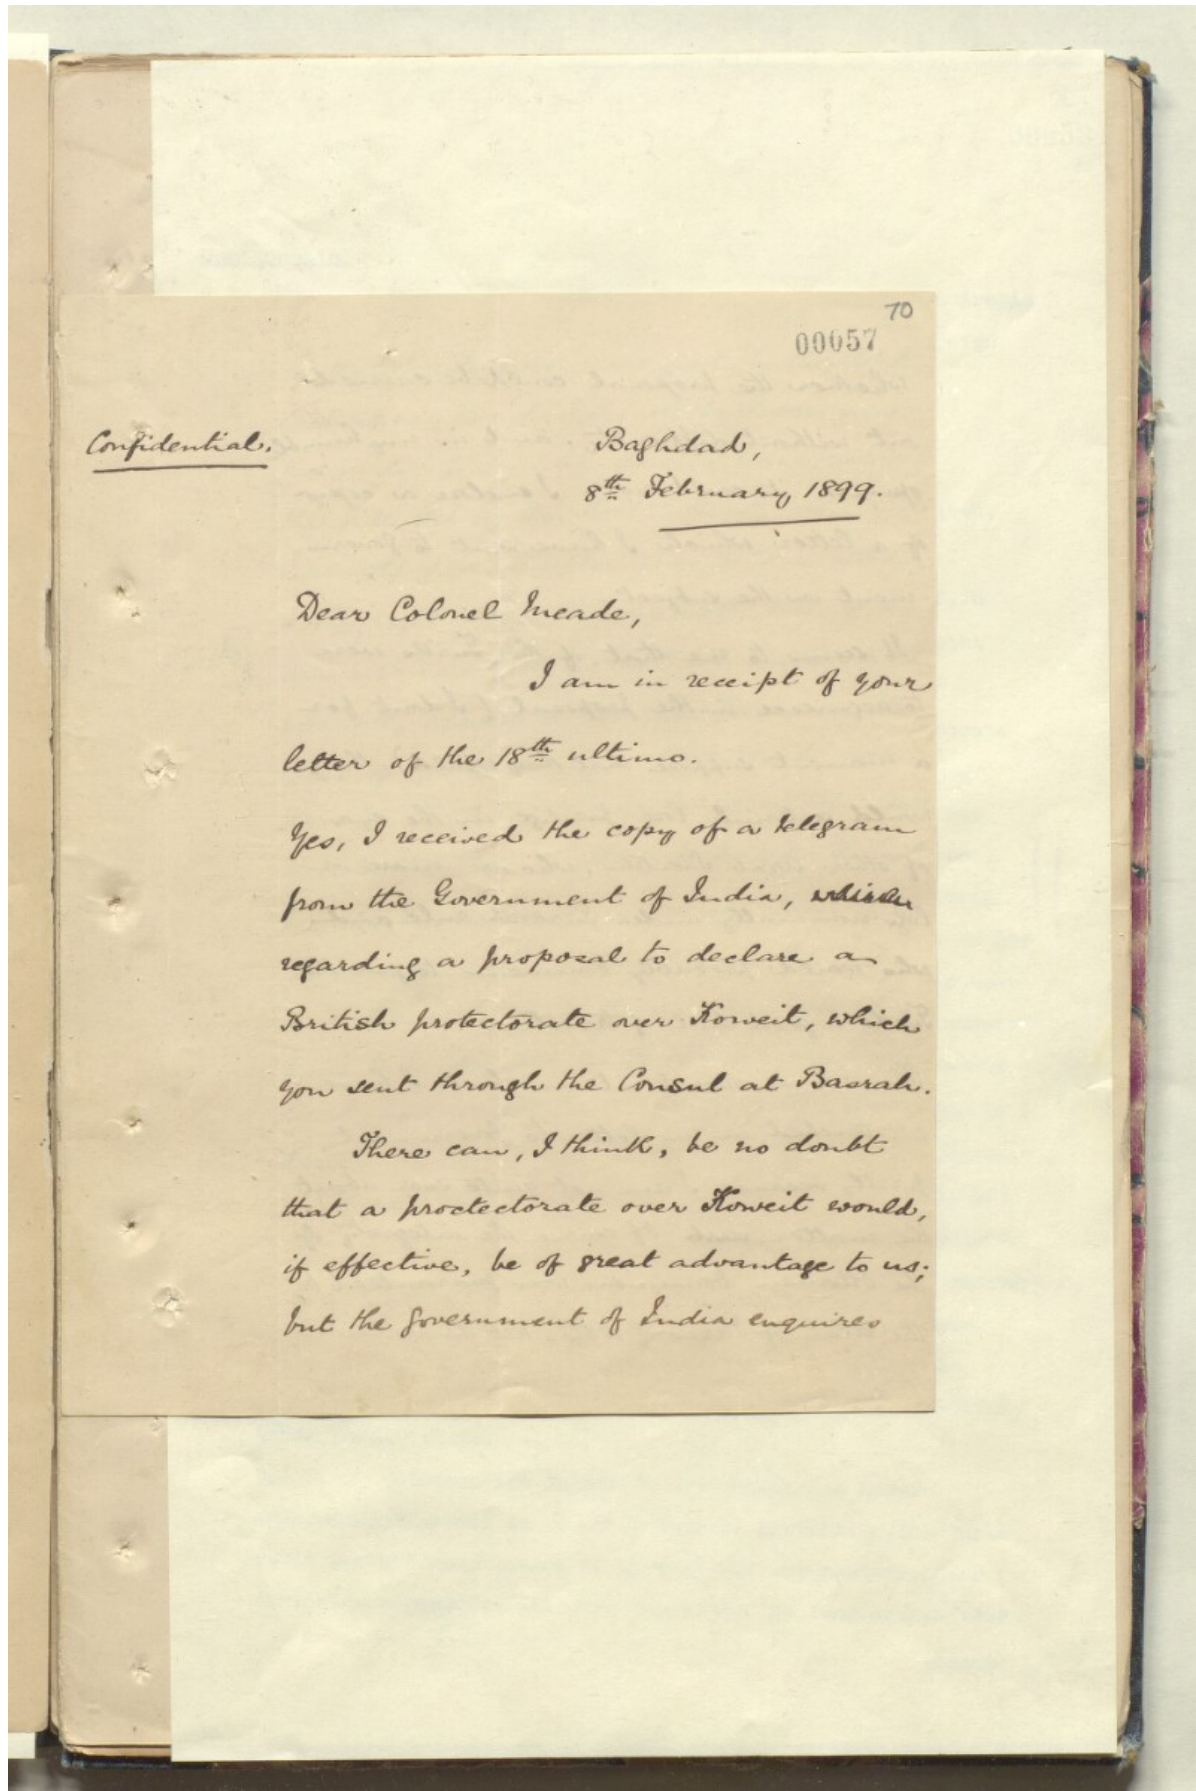 70
00057
Confidential.
Baghdad,
8th February, 1899.
Dear Colonel Meade,
I am in receipt of your
letter of the 18th ultimo.
Yes, I received the copy of a telegram
from the Government of India, which
regarding a proposal to declare a
British protectorate over Koweit, which
you sent through the Consul at Basrah.
There can, I think, be no doubt
that a proctectorate over Koweit would,
if effective, be of great advantage to us;
but the Government of India enquires